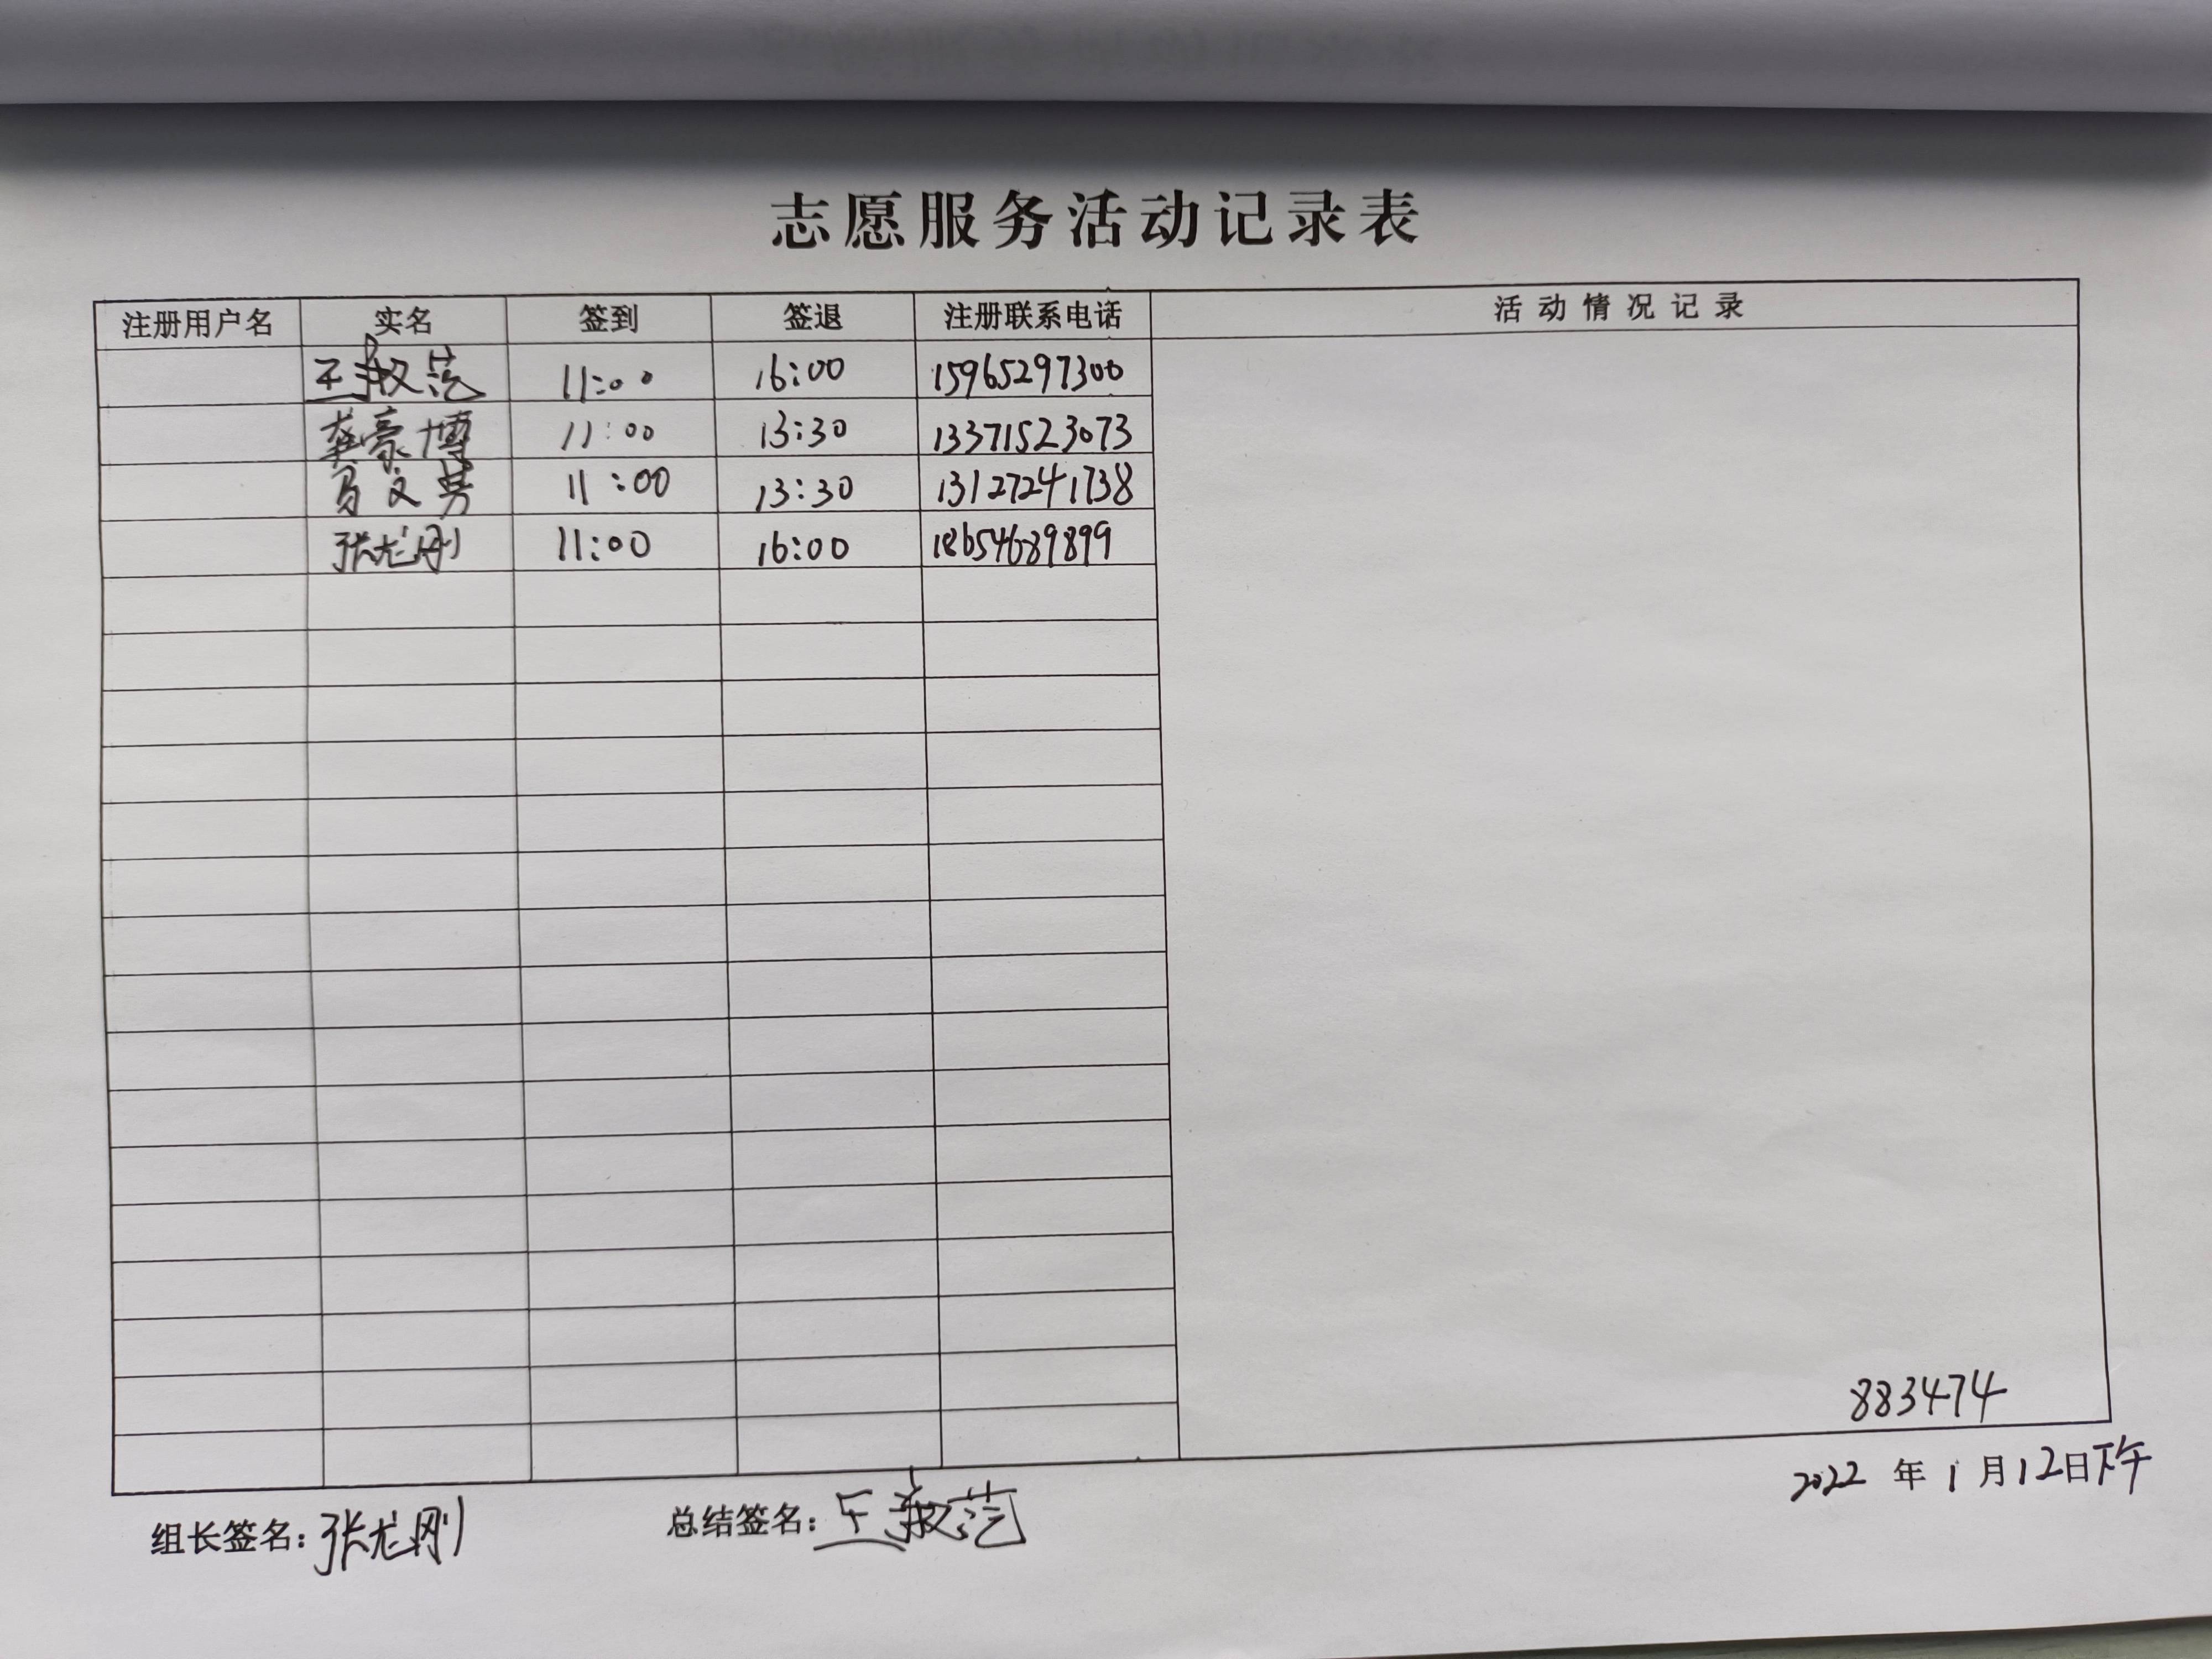 志愿服务活动记录表
注册用户名 实名 签到 签退 注册联系电话 活动情况记录
王 11:00 16:00 15965297300
龚豪博 11:00 13:30 13371523073
文 11:00 13:30 13127241738
张龙刚 11:00 16:00 18654689899
883474
2022 年 1 月 12 日下午
组长签名: 张龙刚 总结签名: 王